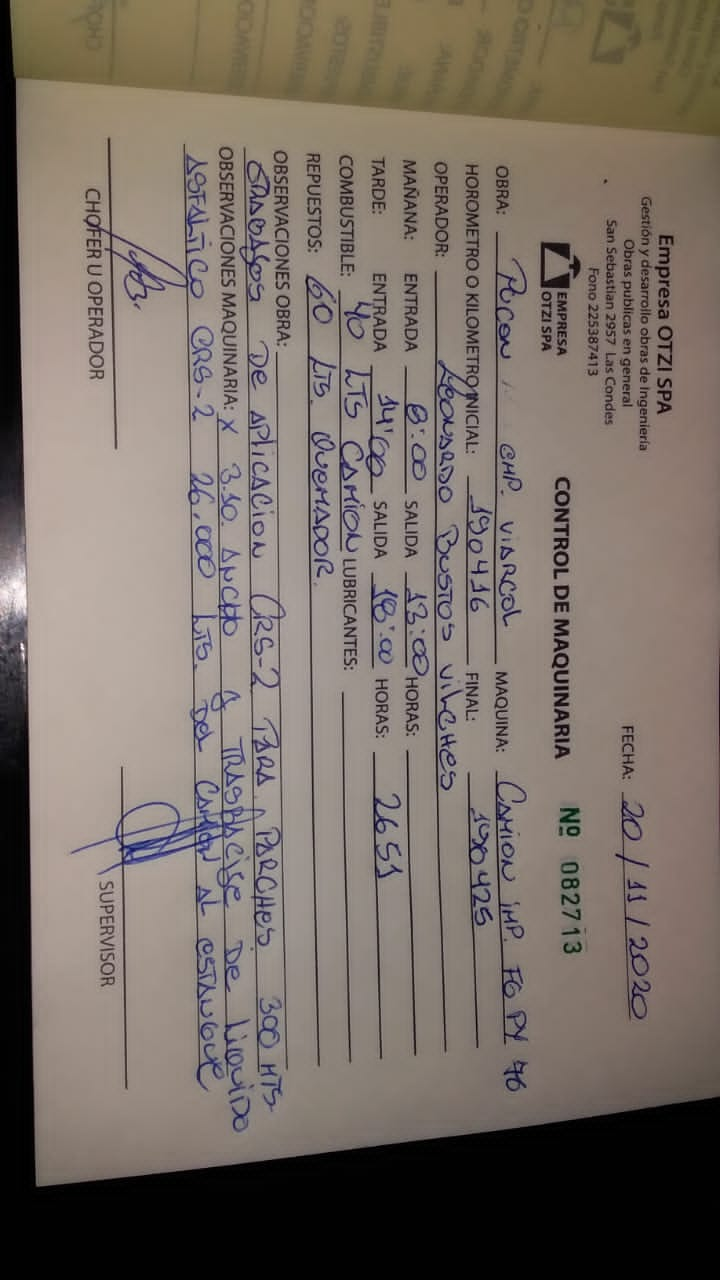 Empresa OTZI SPA
Gestión y desarrollo obras de Ingeniería
Obras publicas en general
San Sebastian 2957 Las Condes
Fono 225387413
FECHA: 20/11/2020
EMPRESA
OTZI SPA
CONTROL DE MAQUINARIA Nº 082713
OBRA: Pucon CMP. VIARCOL MAQUINA: CAMION IMP. FG PY 76
HOROMETRO O KILOMETRO INICIAL: 190416 FINAL: 190425
OPERADOR: LEONARDO BUSTOS VILCHES
MAÑANA: ENTRADA 8:00 SALIDA 13:00 HORAS:
TARDE: ENTRADA 14:00 SALIDA 18:00 HORAS: 2651
COMBUSTIBLE: 40 LTS CAMION LUBRICANTES:
REPUESTOS: 60 LTS. QUEMADOR.
OBSERVACIONES OBRA:
TRABAJOS DE APLICACION CRS-2 PARA PARCHES. 300 MTS.
OBSERVACIONES MAQUINARIA: X 3.10. ANCHO y TRASBACISE DE LIQUIDO
ASFALTICO CRS-2 26.000 LTS. DEL CAMION AL ESTANQUE
CHOFER U OPERADOR
SUPERVISOR